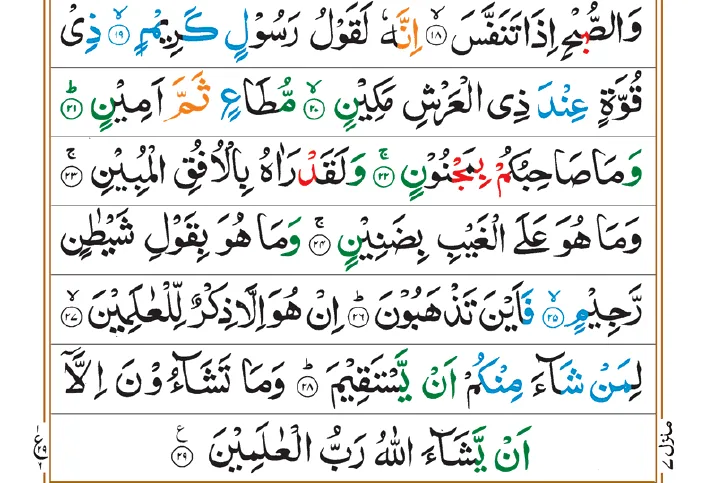 وَالصُّبْحِ اِذَا تَنَفَّسَ ۙ‏﴿۱۸﴾ اِنَّهٗ لَقَوْلُ رَسُوْلٍ كَرِيْمٍ ۙ‏﴿۱۹﴾ ذِىْ
قُوَّةٍ عِنْدَ ذِى الْعَرْشِ مَكِيْنٍ ۙ‏﴿۲۰﴾ مُّطَاعٍ ثَمَّ اَمِيْنٍ ؕ‏﴿۲۱﴾
وَمَا صَاحِبُكُمْ بِمَجْنُوْنٍ ۚ‏﴿۲۲﴾ وَلَقَدْ رَاٰهُ بِالْاُفُقِ الْمُبِيْنِ ۚ‏﴿۲۳﴾
وَمَا هُوَ عَلَى الْغَيْبِ بِضَنِيْنٍ ۚ‏﴿۲۴﴾ وَمَا هُوَ بِقَوْلِ شَيْطٰنٍ
رَّجِيْمٍ ۙ‏﴿۲۵﴾ فَاَيْنَ تَذْهَبُوْنَ ؕ‏﴿۲۶﴾ اِنْ هُوَ اِلَّا ذِكْرٌ لِّلْعٰلَمِيْنَ ۙ‏﴿۲۷﴾
لِمَنْ شَآءَ مِنْكُمْ اَنْ يَّسْتَقِيْمَ ؕ‏﴿۲۸﴾ وَمَا تَشَآءُوْنَ اِلَّاۤ
اَنْ يَّشَآءَ اللّٰهُ رَبُّ الْعٰلَمِيْنَ ‏﴿۲۹﴾ ع
منزل ۷